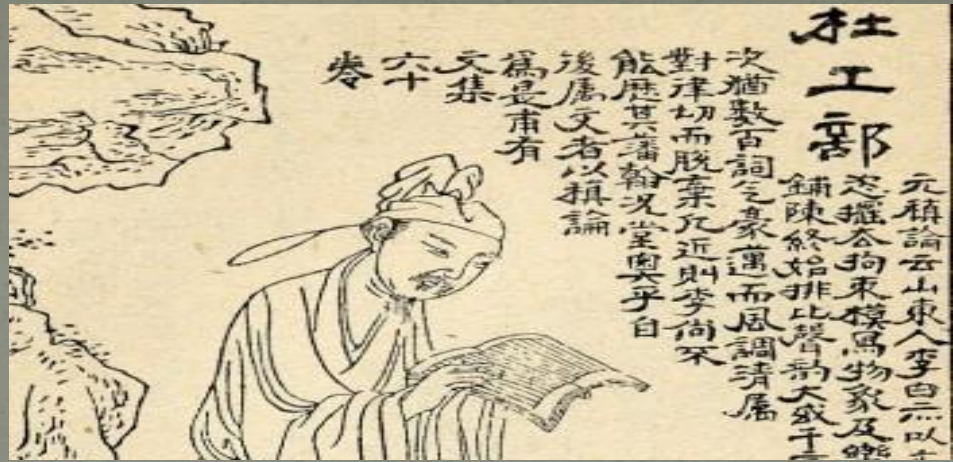 杜工部
元稹論云山東人李白亦以
恣擺去拘束模寫物象及
鋪陳終始排比聲韵大或千
次猶數百詞气豪邁而風調清属
對律切而脱棄凡近則李尚不
能歷其藩翰况堂奥乎自
後属文者以稹論
爲是甫有
文集
六十
卷